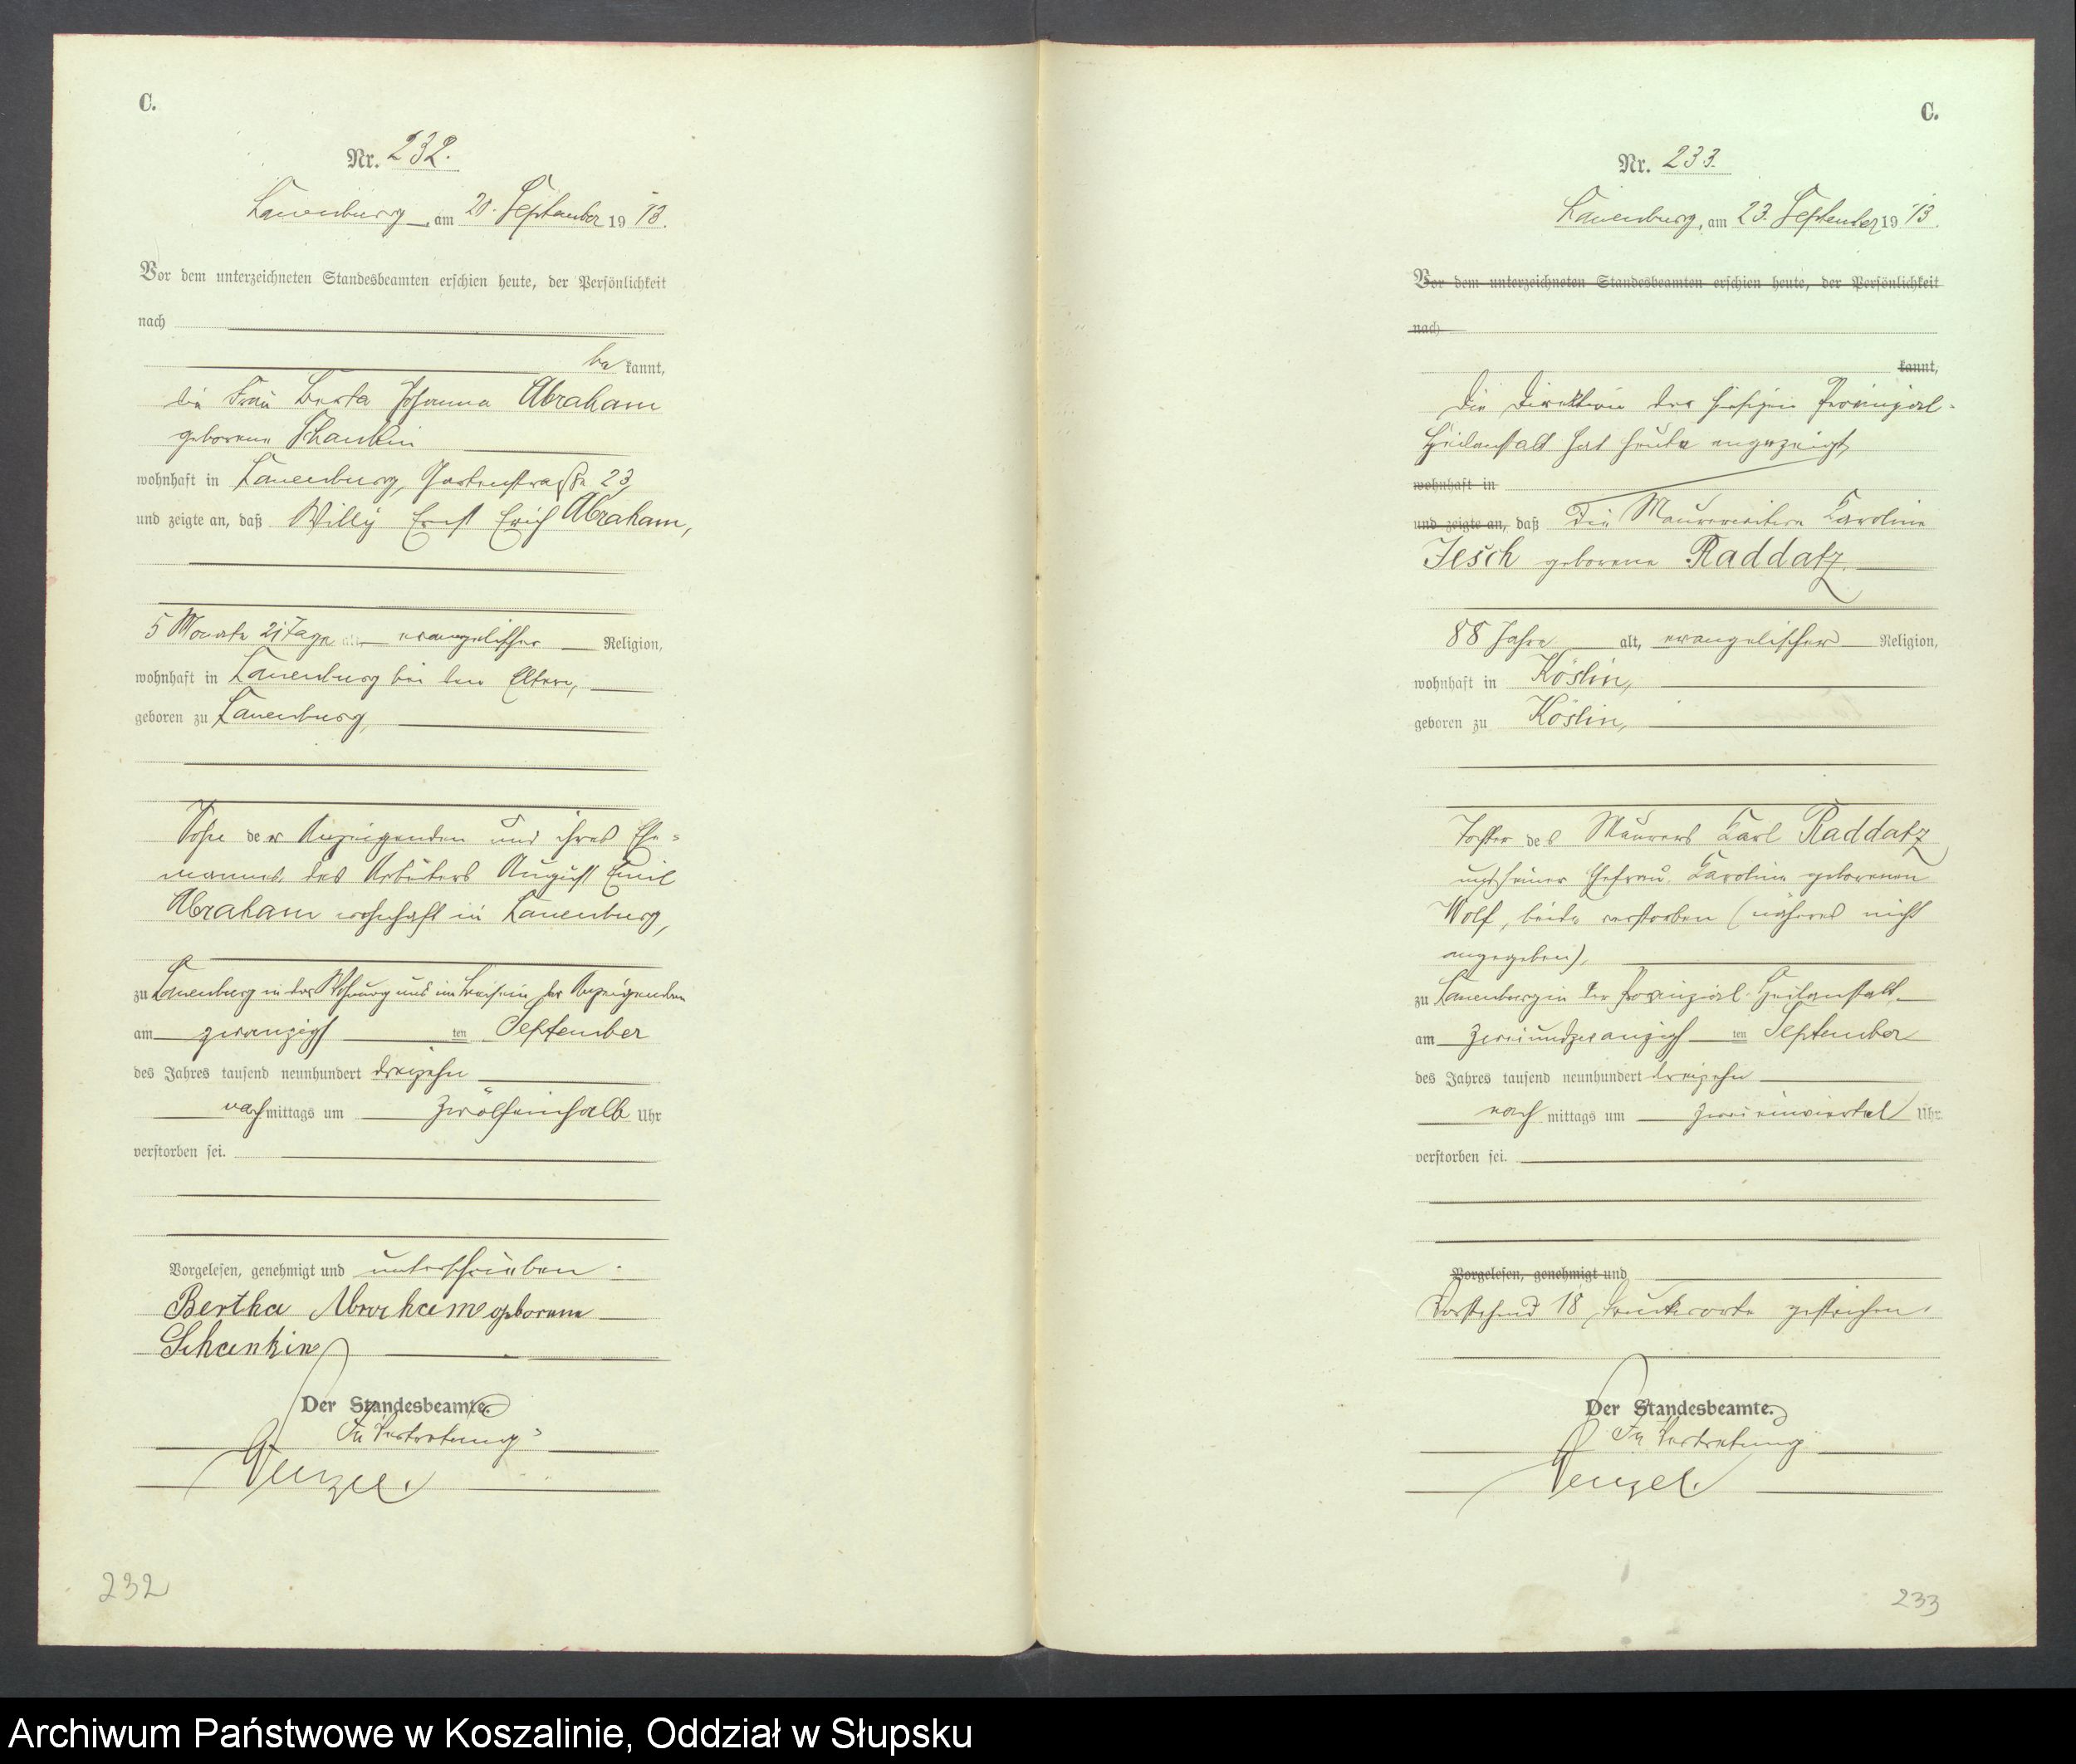 C.
Nr. 232.
Lauenburg, am 20. September 1913.
Vor dem unterzeichneten Standesbeamten erschien heute, der Persönlichkeit
nach
be kannt,
die Frau Berta Johanna Abraham
geborene Schankin
wohnhaft in Lauenburg, Gartenstraße 23,
und zeigte an, daß Willy Ernst Erich Abraham,
5 Monate 21 Tage alt, evangelischer Religion,
wohnhaft in Lauenburg bei den Eltern,
geboren zu Lauenburg,
Sohn der Anzeigenden und ihres Ehe-
mannes des Arbeiters August Emil
Abraham wohnhaft in Lauenburg,
zu Lauenburg in der Wohnung und im Beisein der Anzeigenden
am zwanzigsten September
des Jahres tausend neunhundert dreizehn
nachmittags um zwölfeinhalb Uhr
verstorben sei.
Vorgelesen, genehmigt und unterschrieben.
Bertha Abraham geborene
Schankin
Der Standesbeamte.
In Vertretung
Wenzel.
232
C.
Nr. 233.
Lauenburg, am 23. September 1913.
Vor dem unterzeichneten Standesbeamten erschien heute, der Persönlichkeit
nach
kannt,
Die Direktion der hiesigen Provinzial-
Heilanstalt hat heute angezeigt,
wohnhaft in
und zeigte an, daß die Maurerwitwe Karoline
Jesch geborene Raddatz,
88 Jahre alt, evangelischer Religion,
wohnhaft in Köslin,
geboren zu Köslin,
Tochter des Maurers Karl Raddatz
und seiner Ehefrau Karoline geborenen
Wolf, beide verstorben (näheres nicht
angegeben),
zu Lauenburg in der Provinzial-Heilanstalt
am zweiundzwanzigsten September
des Jahres tausend neunhundert dreizehn
nachmittags um zweieinviertel Uhr
verstorben sei.
Vorgelesen, genehmigt und
Vorstehend 18 Druckworte gestrichen.
Der Standesbeamte.
In Vertretung
Wenzel.
233
Archiwum Państwowe w Koszalinie, Oddział w Słupsku